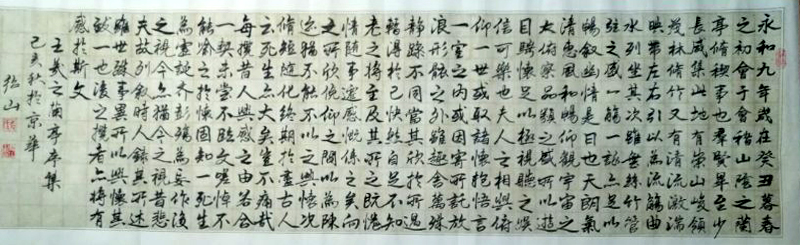 永和九年歲在癸丑暮春
之初會于會稽山陰之蘭
亭脩稧事也群賢畢至少
長咸集此地有崇山峻領
茂林脩竹又有清流激湍
映帶左右引以為流觴曲
水列坐其次雖無絲竹管
弦之盛一觴一詠亦足以
暢叙幽情是日也天朗氣
清惠風和暢仰觀宇宙之
大俯察品類之盛所以遊
目騁懷足以極視聽之娛
信可樂也夫人之相與俯
仰一世或取諸懷抱悟言
一室之內或因寄所託放
浪形骸之外雖趣舍萬殊
靜躁不同當其欣於所遇
暫得於己快然自足不知
老之將至及其所之既惓
情隨事遷感慨係之矣向
之所欣俛仰之間以為陳
迹猶不能不以之興懷況
脩短隨化終期於盡古人
云死生亦大矣豈不痛哉
每攬昔人興感之由若合
一契未嘗不臨文嗟悼不
能喻之於懷固知一死生
為虛誕齊彭殤為妄作後
之視今亦猶今之視昔悲
夫故列叙時人錄其所述
雖世殊事異所以興懷其
致一也後之攬者亦將有
感於斯文
王羲之蘭亭序集
己亥秋於京華
山